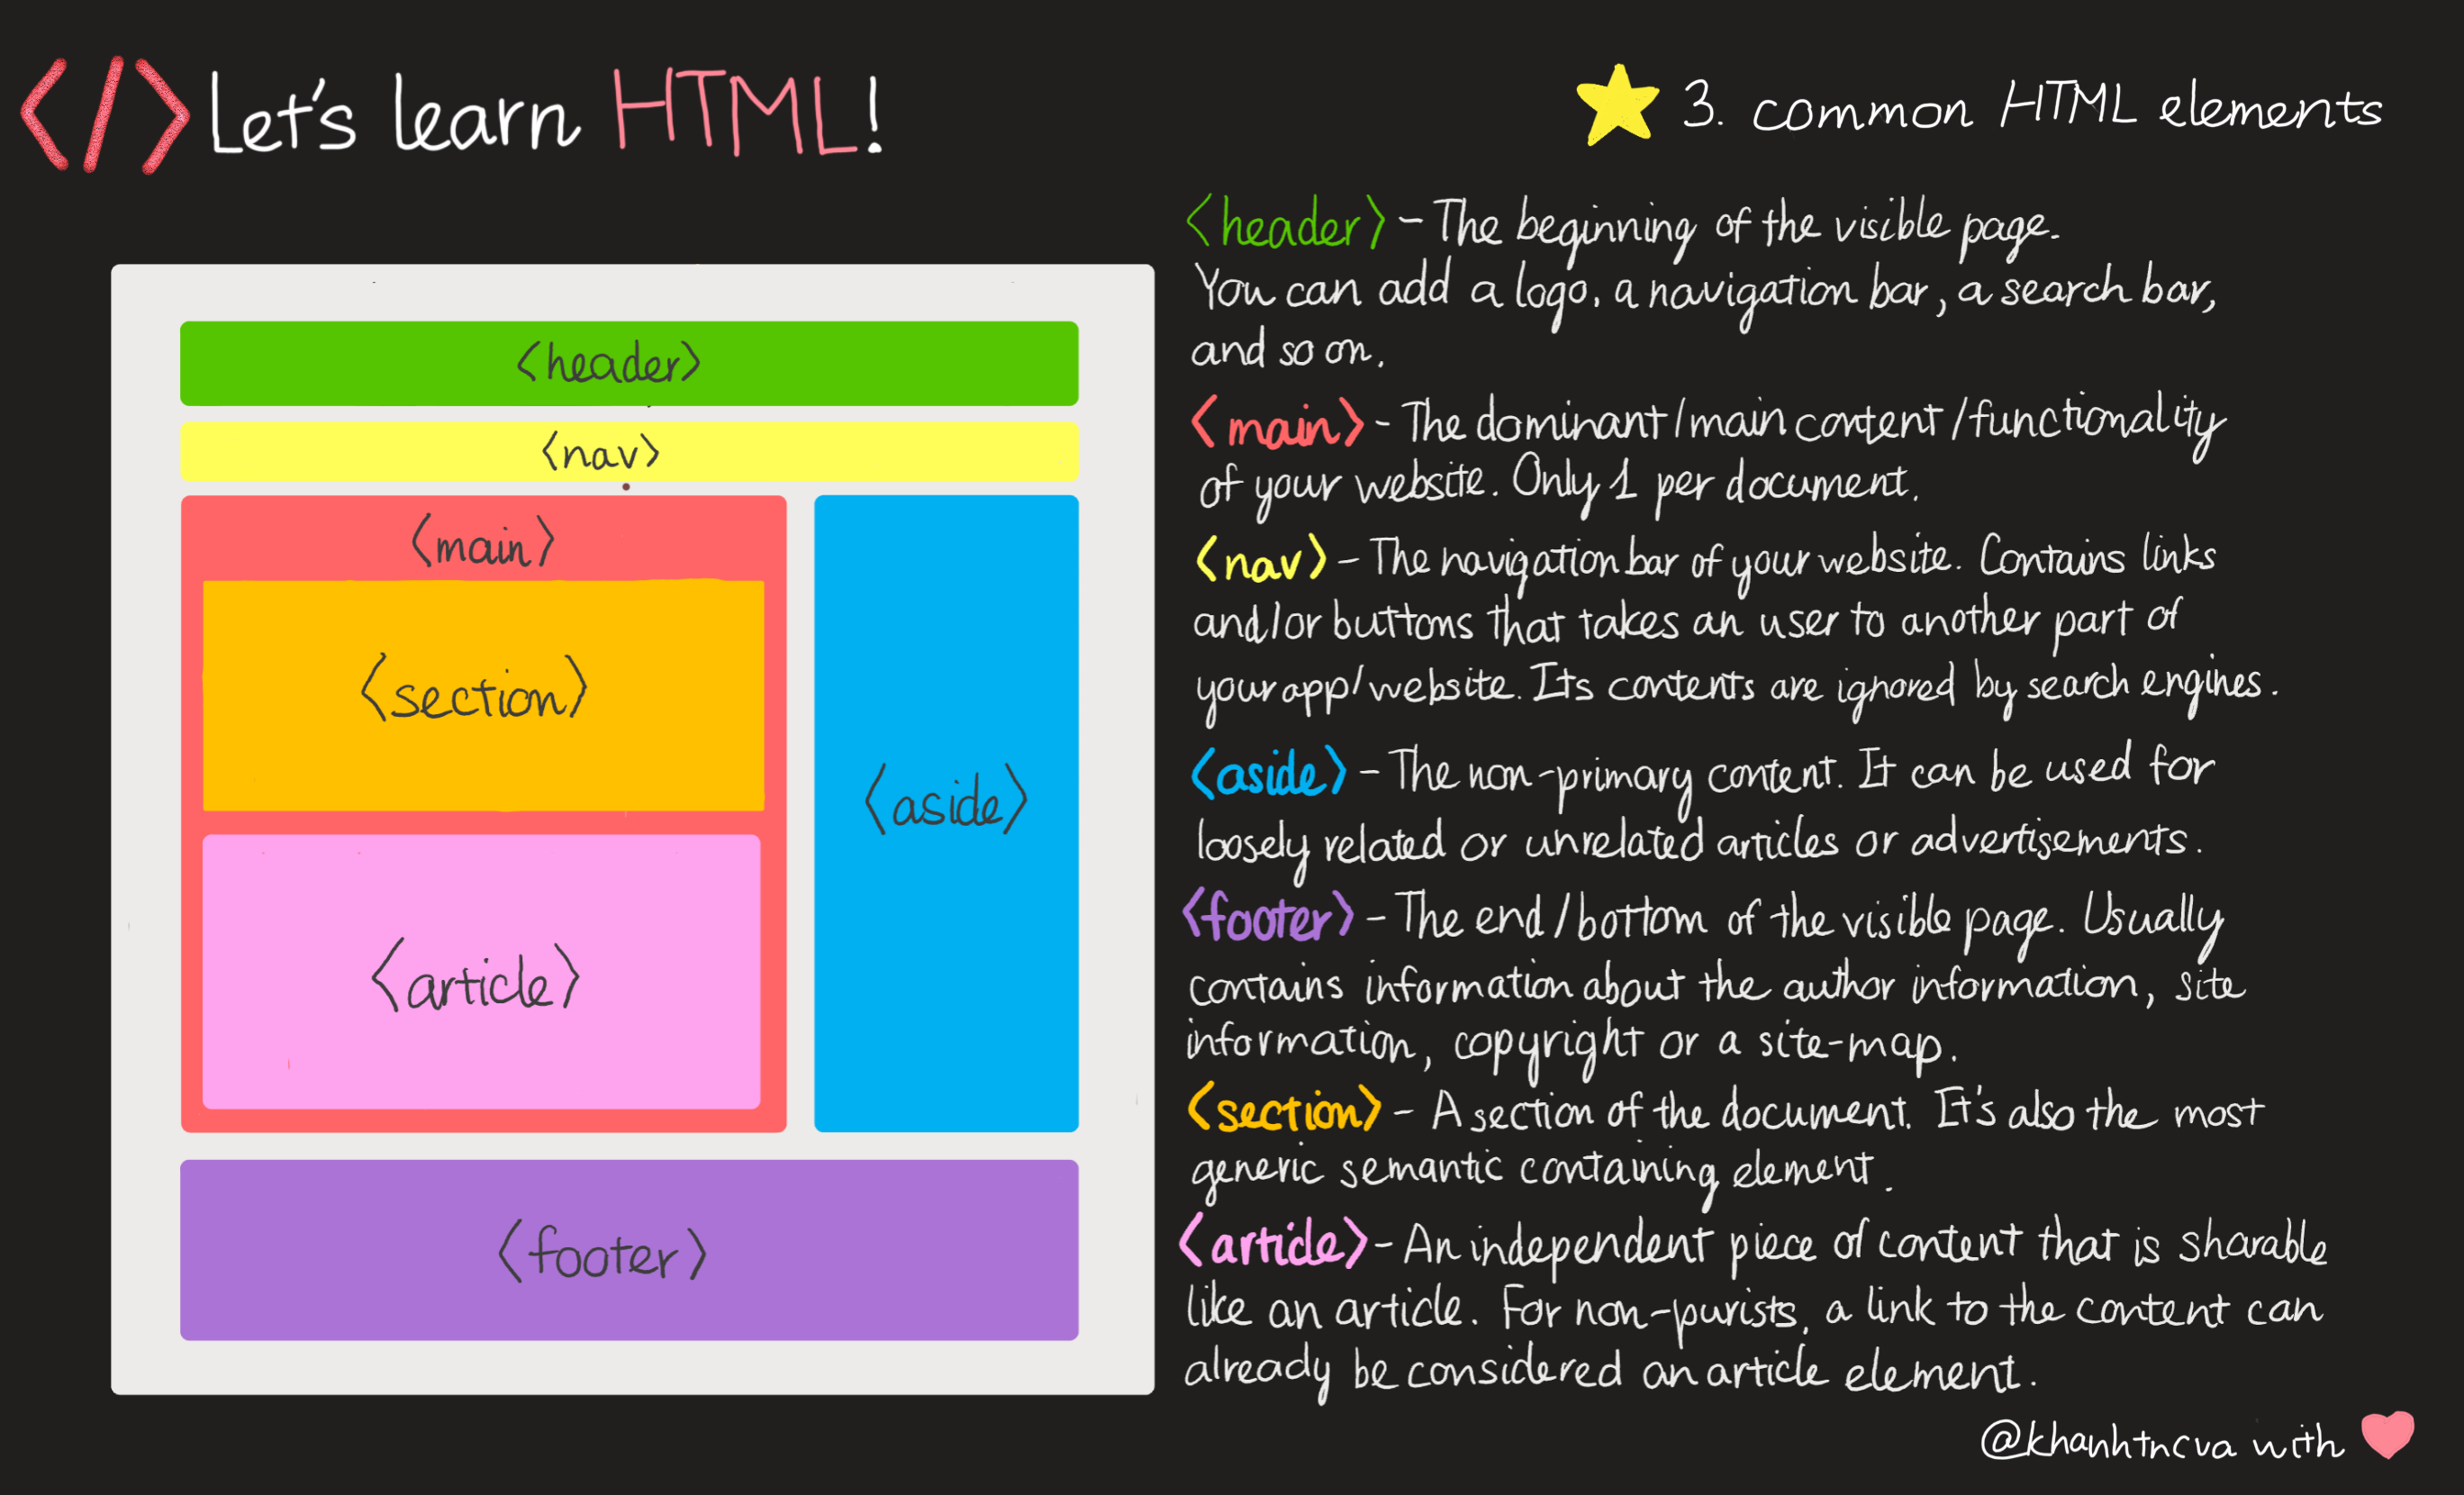 </> Let's learn HTML!
3. common HTML elements
<header>
<nav>
<main>
<section>
<article>
<aside>
<footer>
<header> - The beginning of the visible page.
You can add a logo, a navigation bar, a search bar,
and so on.
<main> - The dominant/main content/functionality
of your website. Only 1 per document.
<nav> - The navigation bar of your website. Contains links
and/or buttons that takes an user to another part of
your app/website. Its contents are ignored by search engines.
<aside> - The non-primary content. It can be used for
loosely related or unrelated articles or advertisements.
<footer> - The end/bottom of the visible page. Usually
contains information about the author information, site
information, copyright or a site-map.
<section> - A section of the document. It's also the most
generic semantic containing element.
<article> - An independent piece of content that is sharable
like an article. For non-purists, a link to the content can
already be considered an article element.
@khanhtncva with